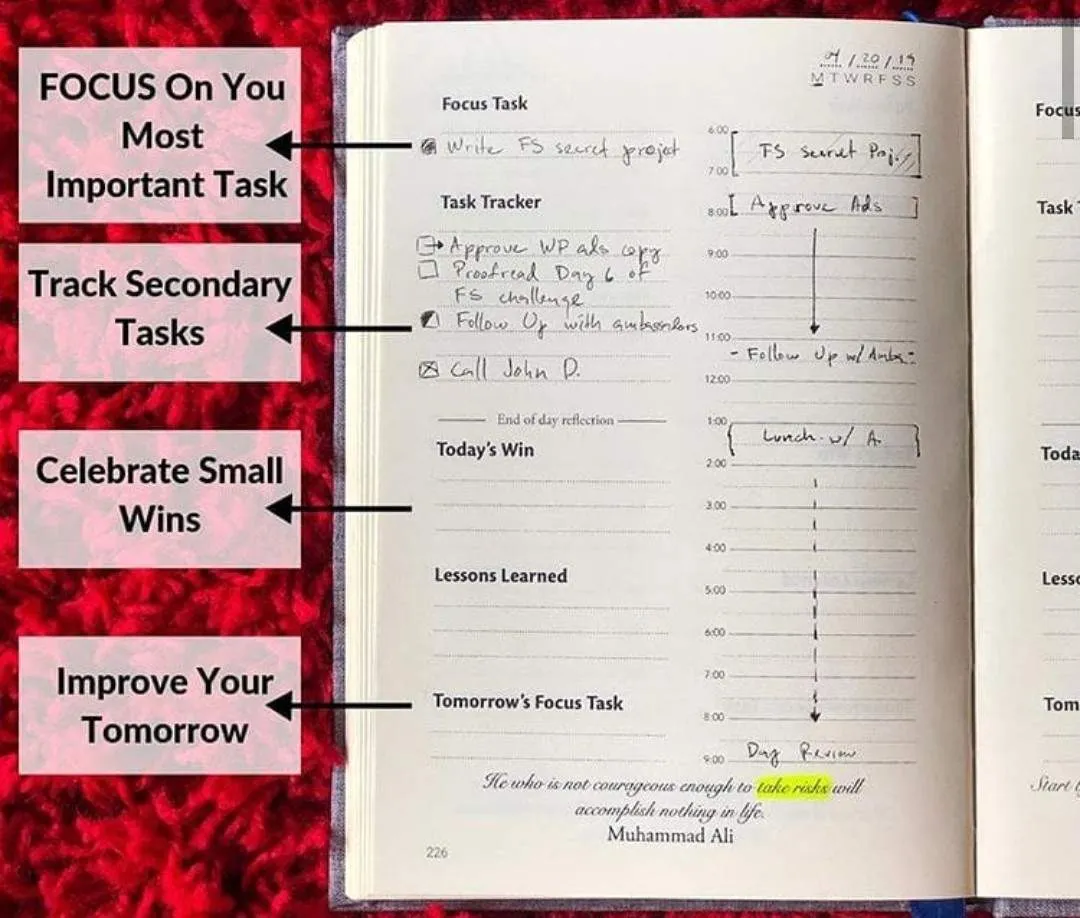 FOCUS On You
Most
Important Task
Track Secondary
Tasks
Celebrate Small
Wins
Improve Your
Tomorrow
/ 20 / 19
M T W R F S S
Focus Task
Write FS secret projet
Task Tracker
Approve WP ads copy
Proofread Day 6 of
FS challenge
Follow Up with ambassadors
Call John D.
End of day reflection
Today's Win
Lessons Learned
Tomorrow's Focus Task
6:00
FS secret Proj.
7:00
8:00 Approve Ads
9:00
10:00
11:00
- Follow Up w/ Amba -
12:00
1:00
Lunch w/ A.
2:00
3:00
4:00
5:00
6:00
7:00
8:00
Day Review
9:00
He who is not courageous enough to take risks will
accomplish nothing in life.
Muhammad Ali
226
Focus
Task
Toda
Lesso
Tom
Start